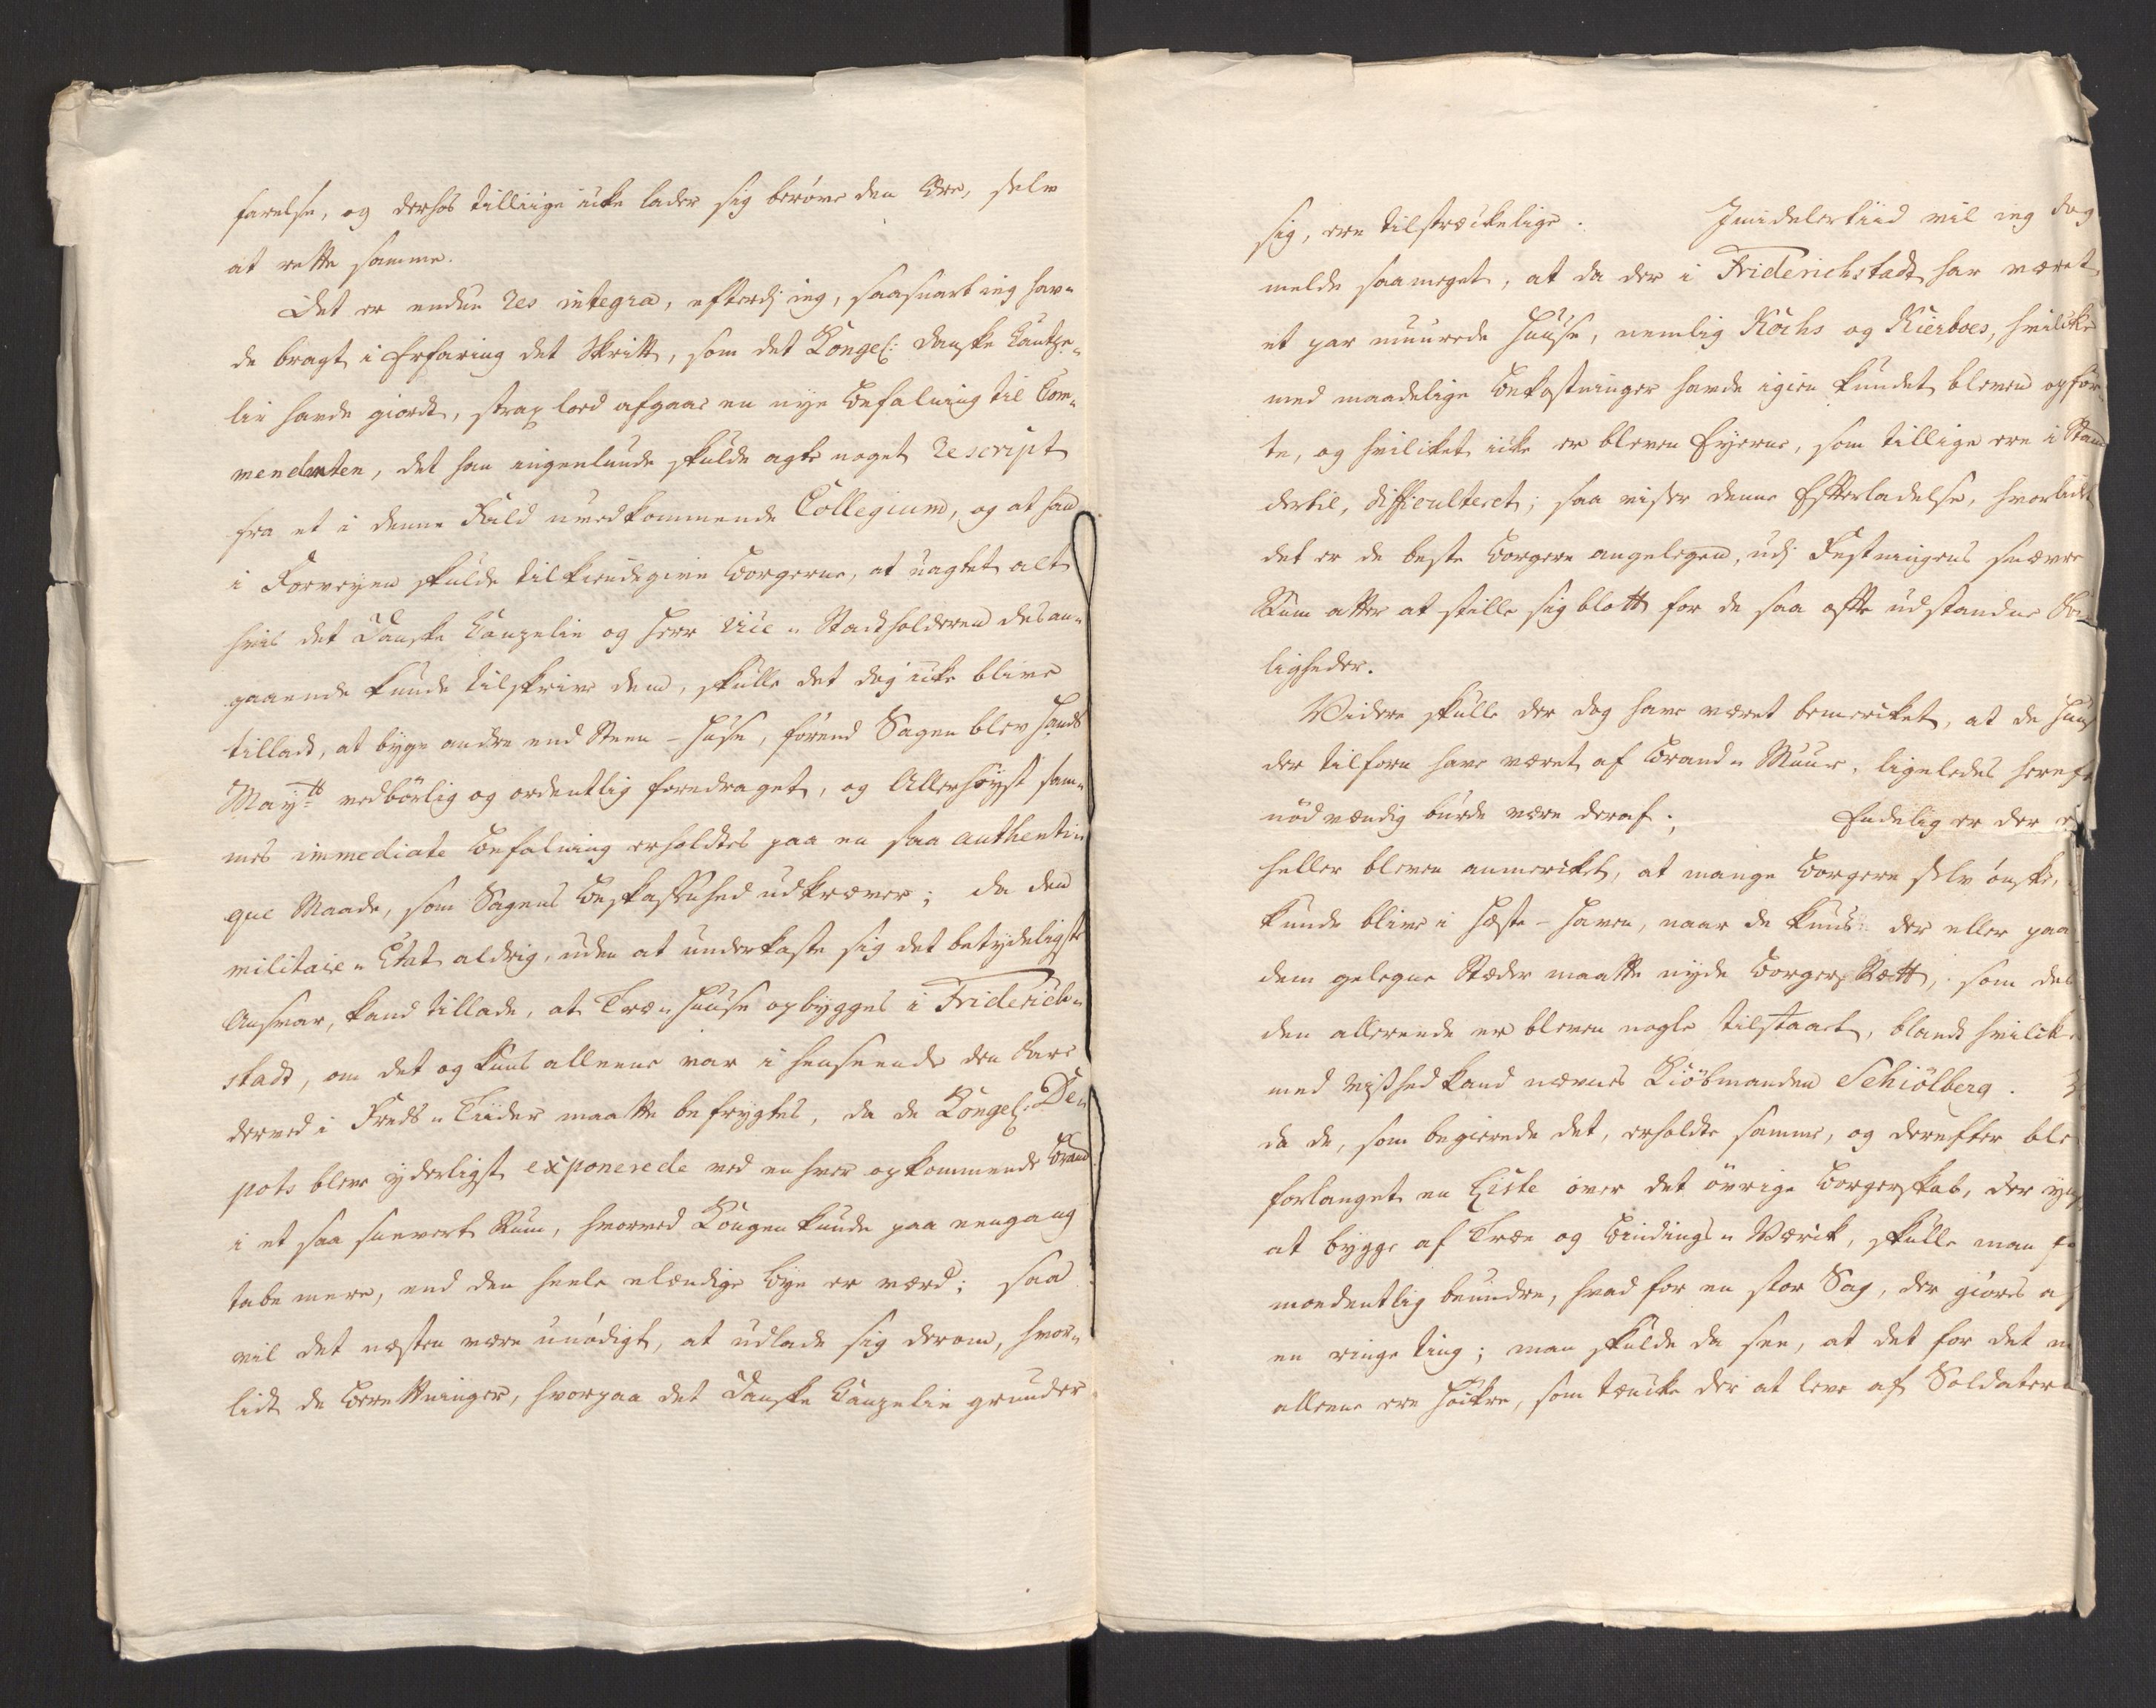 farelse, og derhos tilliige icke lader sig berøve den Ære, selv
at rette samme.
Det er endnu res integra, efterdj ieg, saasnart ieg hav„
de bragt i Erfaring det Skritt, som det Kongel: Danske Cantze„
lie havde giordt, strax lod afgaae en nye Befalning til Com„
mendenten, det han ingenlunde skulde agte noget Rescript
fra et i denne Fald uvedkommende Collegium, og at han
i Forveyen skulde tilkiendegive Borgerne, at uagtet alt
hvis det Danske Canzelie og Herr Vice„Stadtholderen desan„
gaaende kunde tilskrive dem, skulle det dog icke blive
tilladt, at byge andre end Steen-Huse, førend Sagen blev Hands
Mayts vedbørlig og ordentlig foredraget, og Allerhøyst sam„
mes immediate Befalning erholdtes paa en saa authenti„
que Maade, som Sagens Beskaffenhed udkræver; da den
militaire„Etat aldrig, uden at underkaste sig det betydeligste
Ansvar, kand tillade, at Træ„Huuse opbygges i Friderich„
stadt, om det og kuns alleene var i henseende den Fare
derved i Freds„Tiider maatte befrygtes, da de Kongel: De„
pots blev yderligst exponerede ved en hver opkommende Brand
i et saa snevert Rum, hvorved Kongen kunde paa eengang
tabe mere, end den heele elendige Bye er værd; saa
vil det næsten være unødigt, at udlade sig derom, hvor„
lidt de Berettninger, hvorpaa det Danske Canzelie grunder
sig, ere tilstræckelige. Imidlertiid vil ieg dog
melde saameget, at da der i Friderichstadt har været
et par muurede Huuse, nemlig Kochs og Kierboes, hvilcke
med maadelige Bekostninger havde igien kundet bleven opfør„
te, og hvilcket icke er bleven Eyerne, som tillige ere i Stand
dertil, difficulteret; saa viser denne Efterladelse, hvorlidt
det er de beste Borgere angelegen, udj Festningens snævre
Rum atter at stille sig blott for de saa ofte udstandne
ligheder.
Videre skulle der dog have været bemercket, at de Huus
der tilforn have været af Brand„Muur, ligeledes
nødvendig burde være deraf; Endelig er der
heller bleven anmercket, at mange Borgere selv ønske,
kunde blive i Hæste-Haven, naar de kuns der eller paa
dem gelegne Stæder maatte nyde Borger Rett, som
den allerede er bleven nogle tilstaaet, blandt hvilcke
med Vished kand nævnes Kiøbmanden Schiølberg.
da de, som begierede det, erholdte samme, og derefter ble
forlanget en Liste over det øvrige Borgerskab, der
at bygge af Træe og Bindings„Værck, skulle man
modentlig beundre, hvad for en stor Sag, der giøres af
en ringe ting; man skulde da see, at det for det
alleene ere Høckre, som tæncke der at leve af Soldatern